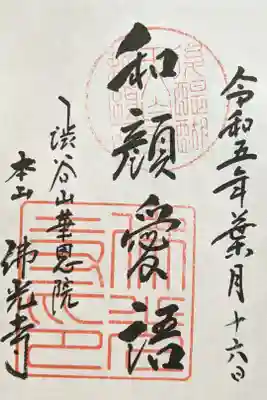 令和五年葉月十六日
和顔愛語
渋谷山華恩院
本山佛光寺